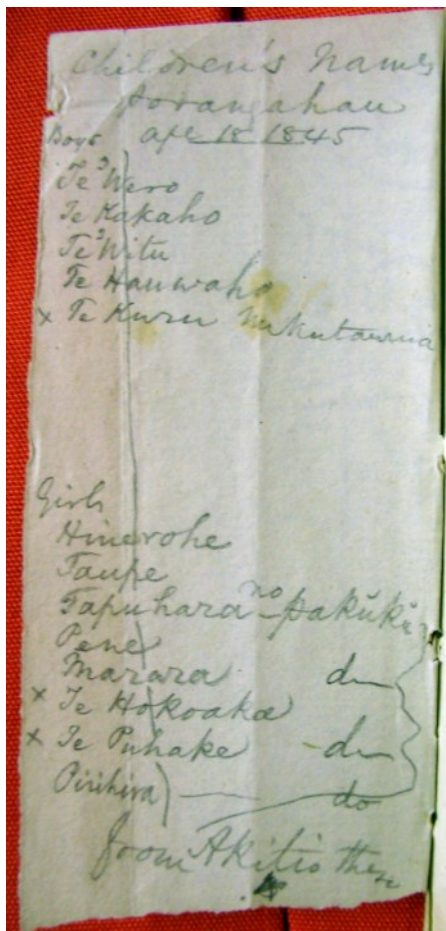 Children's Names
Porangahau
Boys Apl 18 1845
Te Wero
Te Kakaho
Te Witu
Te Hauwaho
x Te Kuru
Girls
Hinerohe
Taupe
Tapuhara no Pakŭkŭ
Pene
Marara do
x Te Hokoaka
x Te Puhake do
Pirihira) — do
from Akitio